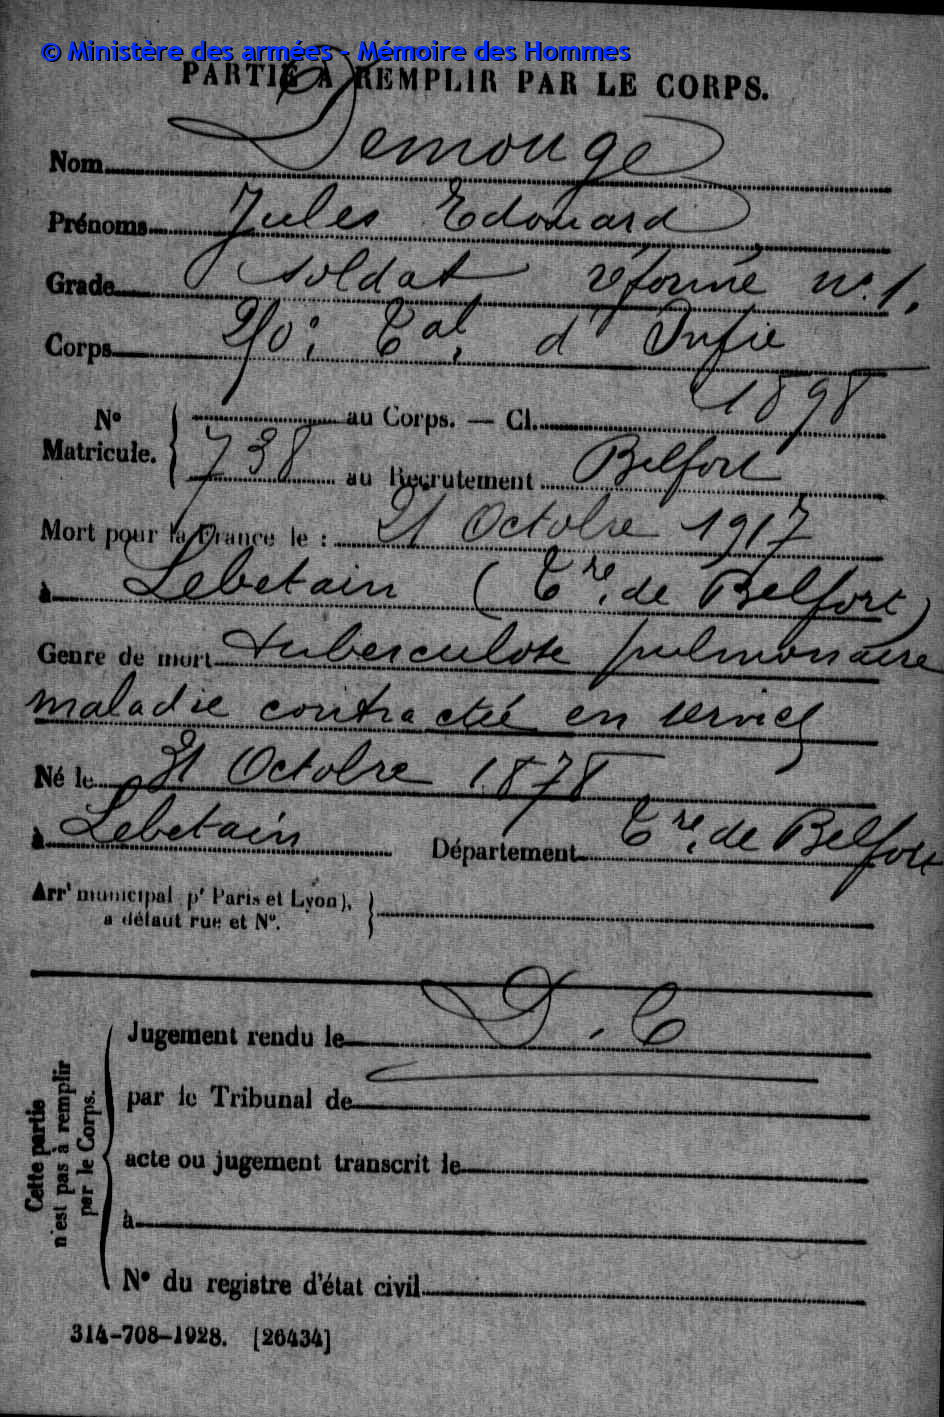 © Ministère des armées - Mémoire des Hommes
PARTIE À REMPLIR PAR LE CORPS.
Nom Demouge
Prénoms Jules Edouard
Grade soldat réformé nº 1.
Corps Bal d'Infie
Nº Matricule. au Corps. — Cl. 1898
738 au Recrutement Belfort
Mort pour la France le : 21 Octobre 1917
à Lebetain (Tre de Belfort)
Genre de mort tuberculose pulmonaire
maladie contractée en service
Né le 21 Octobre 1878
à Lebetain Département Tre de Belfort
Arrt municipal pr Paris et Lyon),
a défaut rue et Nº.
D.C
Jugement rendu le
par le Tribunal de
acte ou jugement transcrit le
à
Nº du registre d'état civil
Cette partie
n'est pas à remplir
par le Corps.
314-708-1928. [26434]